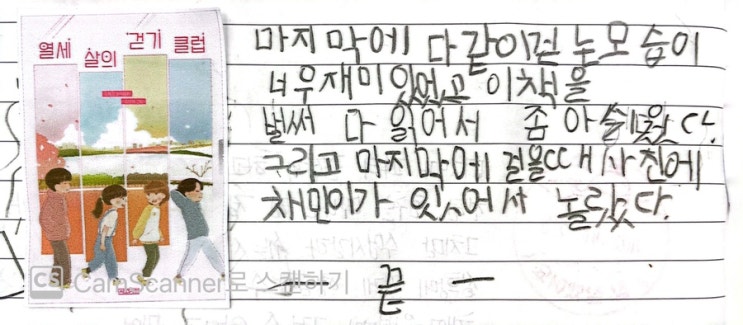 열세 살의 걷기 클럽
마지막에 다같이걷는모습이
너무재미있었고 이책을
벌써 다 읽어서 좀 아쉬웠다.
그리고 마지막에 걸을때사진에
채민이가 있어서 놀랐다.
끝
CS CamScanner로 스캔하기